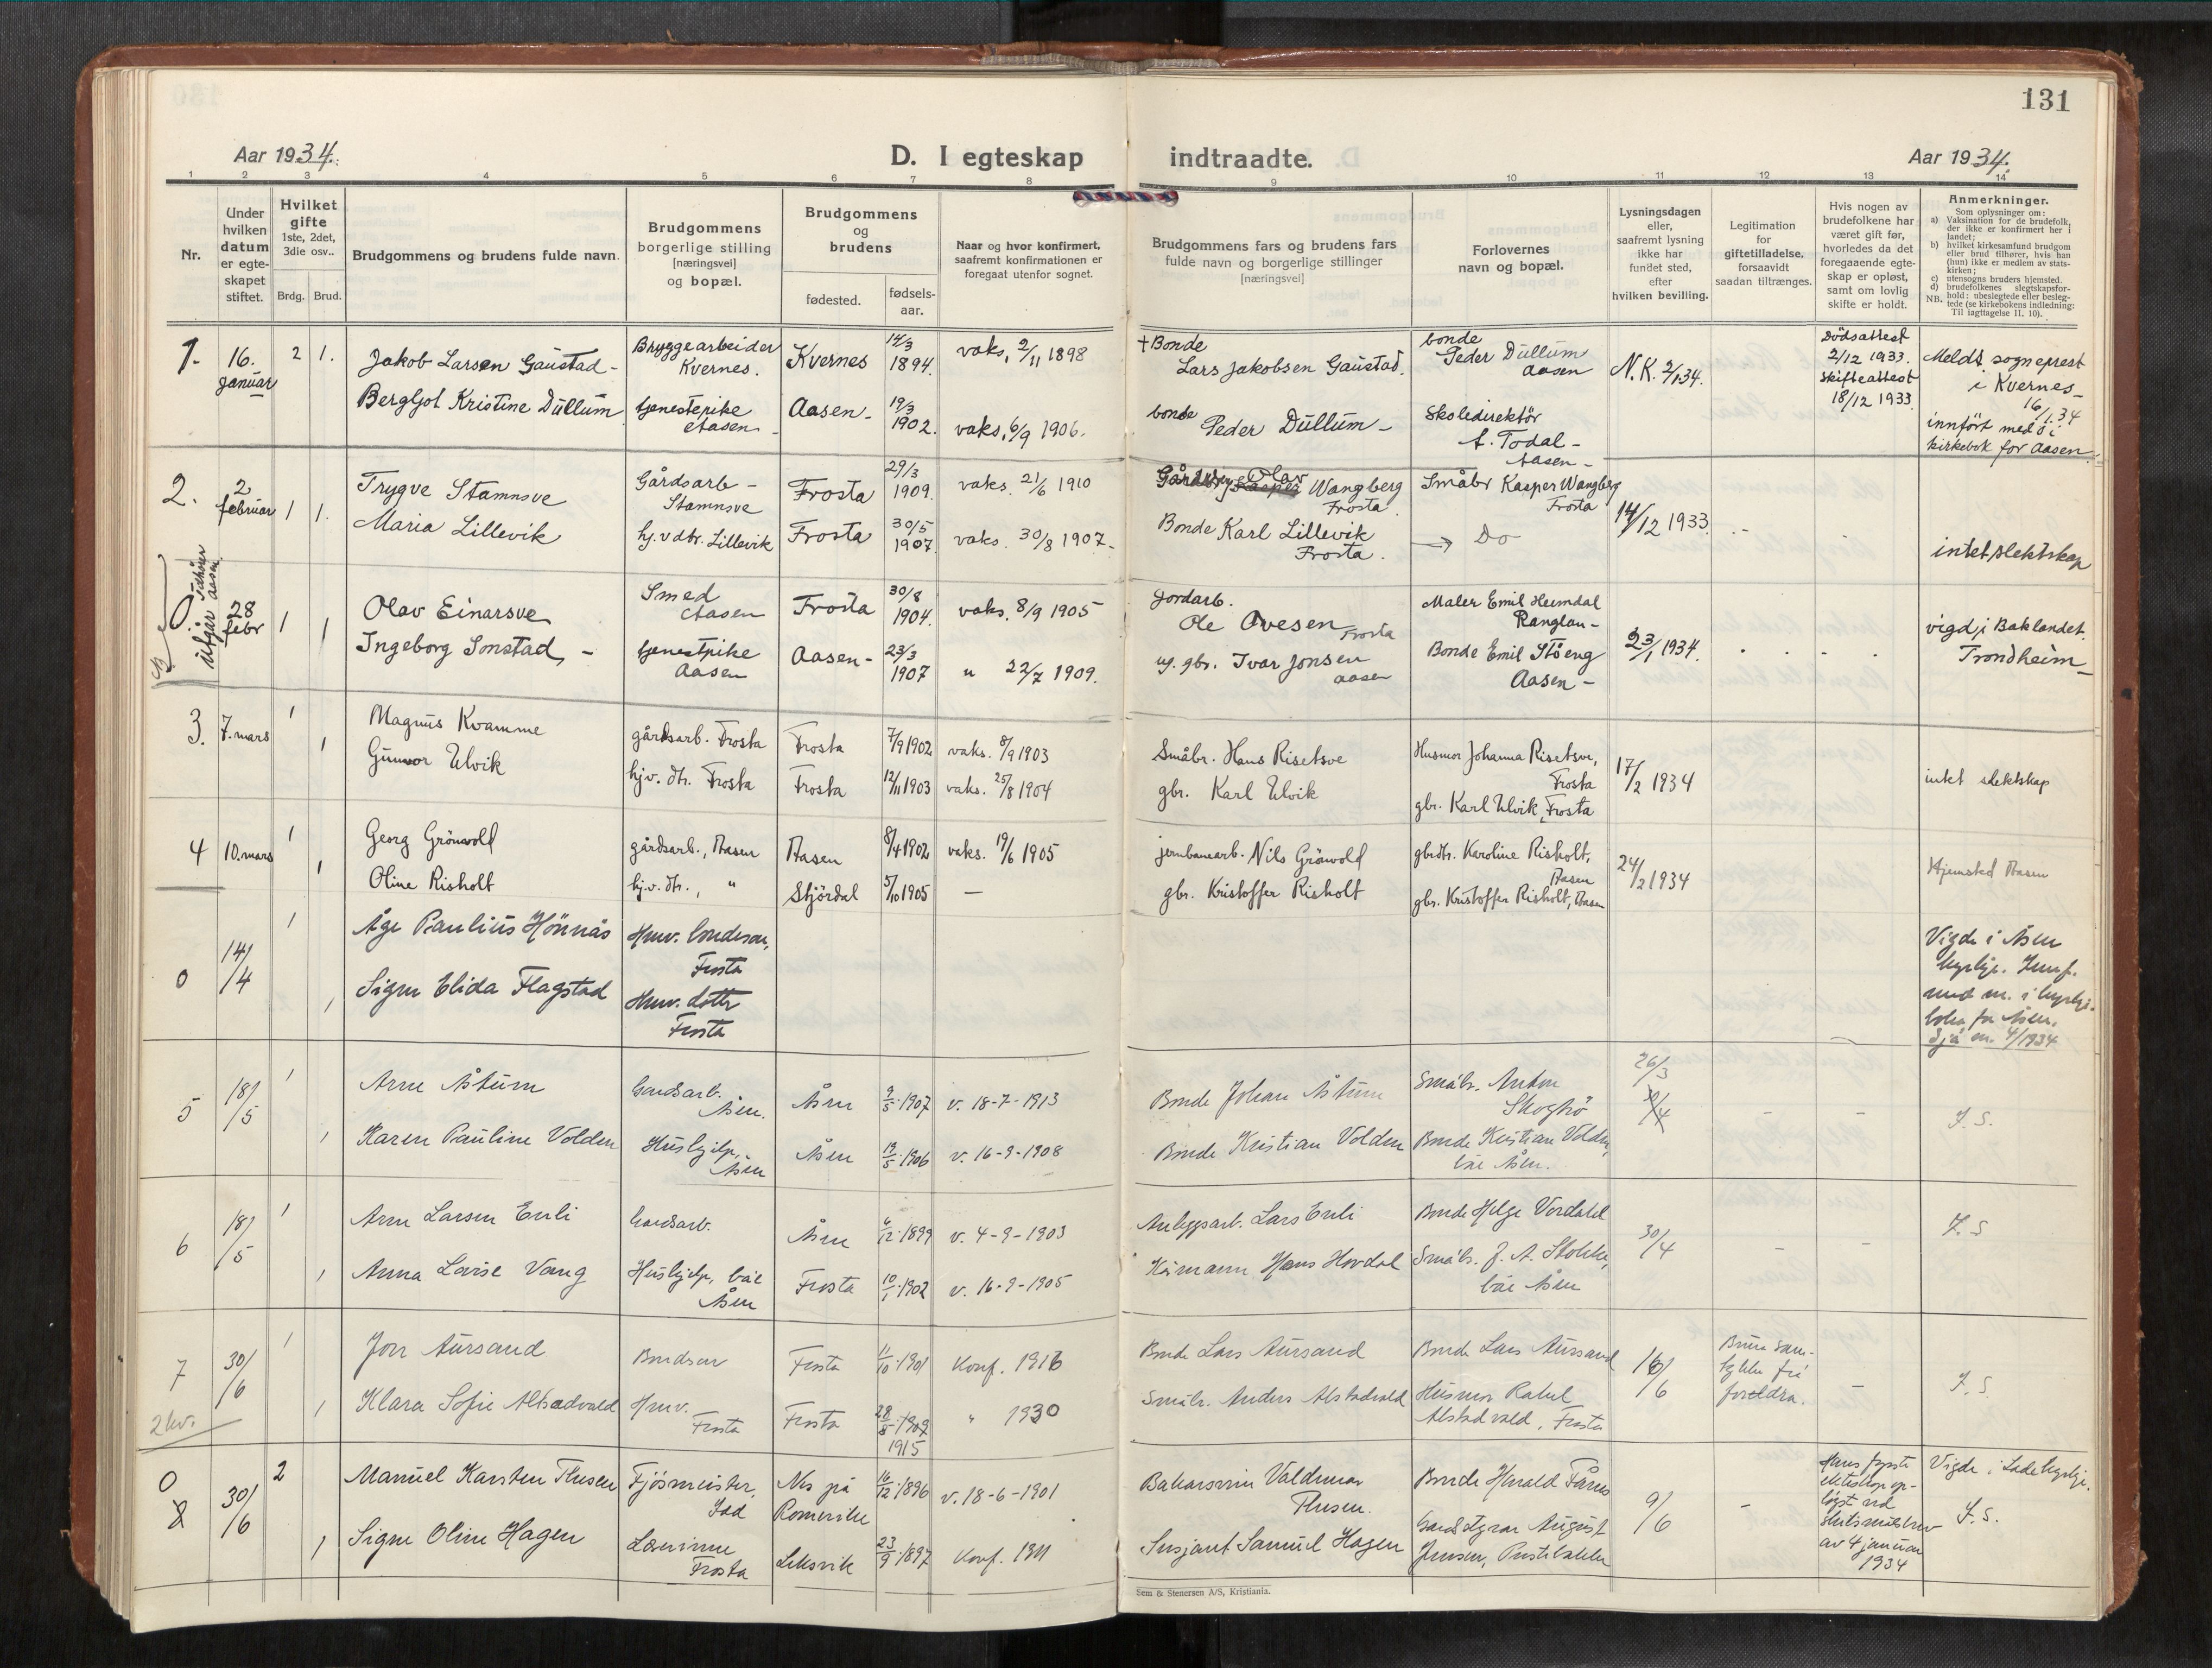 131
Aar 1934.
D. I egteskap indtraadte.
Aar 1934.
1 2 3 4 5 6 7 8 9 10 11 12 13 14
Nr.
Under hvilken datum er egteskapet stiftet.
Hvilket gifte 1ste, 2det, 3die osv..
Brdg. Brud.
Brudgommens og brudens fulde navn.
Brudgommens borgerlige stilling [næringsvei] og bopæl.
Brudgommens og brudens
fødested.
fødselsaar.
Naar og hvor konfirmert, saafremt konfirmationen er foregaat utenfor sognet.
Brudgommens fars og brudens fars fulde navn og borgerlige stillinger [næringsvei]
Forlovernes navn og bopæl.
Lysningsdagen eller, saafremt lysning ikke har fundet sted, efter hvilken bevilling.
Legitimation for giftetilladelse, forsaavidt saadan tiltrænges.
Hvis nogen av brudefolkene har været gift før, hvorledes da det foregaaende egteskap er opløst, samt om lovlig skifte er holdt.
Anmerkninger.
Som oplysninger om:
a) Vaksination for de brudefolk, der ikke er konfirmert her i landet;
b) hvilket kirkesamfund brudgom eller brud tilhører, hvis han (hun) ikke er medlem av statskirken;
c) utensogns bruders hjemsted.
d) brudefolkenes slegtskapsforhold: ubeslegtede eller beslegtede (se kirkebokens indledning: Til iagttagelse II, 10).
NB.
1. 16. januar 2 1.
Jakob Larsen Gaustad - Bryggearbeider Kvernes. Kvernes 14/3 1894. vaks, 2/11 1898
+ Bonde Lars Jakobsen Gaustad. bonde Peder Dullum Aasen N.K. 2/1 34. Dödsattest 2/12 1933. Skifteattest 18/12 1933.
Bergljot Kristine Dullum tjenestepike Aasen - Aasen - 19/3 1902. vaks, 6/9 1906.
bonde Peder Dullum - Skoledirektör A. Todal - Aasen -
Meldt sogneprest i Kvernes - 16/1.34 innfört med 0 i kirkebok for Aasen.
2. 2 februar 1 1.
Trygve Stamnsve Gårdsarb - Stamnsve Frosta 29/3 1909. vaks. 21/6 1910
Olav Wangberg Frosta. Småbr Kasper Wangberg Frosta 14/12 1933
Maria Lillevik hj.v dtr. Lillevik Frosta 30/5 1907. vaks. 30/8 1907 -
Bonde Karl Lillevik Frosta. → Do
intet slektskap
0. utgår tilhører aasen 28 febr 1 1
Olav Einarsve Smed Aasen Frosta 30/8 1904. vaks. 8/9 1905
Jordarb. Ole Ovesen Frosta Maler Emil Heimdal Ranglan - 23/1 1934.
Ingeborg Sonstad, - tjenestpike Aasen Aasen - 23/3 1907 " 22/7 1909.
gbr. Ivar Jonsen aasen Bonde Emil Stöeng Aasen -
vigd, i Baklandet. Trondheim -
3. 7. mars 1 1
Magnus Kvamme gårdsarb. Frosta Frosta 7/9 1902 vaks. 8/9 1903
Småbr. Hans Risetsve Husmor Johanna Risetsve, Frosta 17/2 1934
Gunvor Ulvik hjv. dtr. Frosta Frosta 12/11 1903 vaks. 25/8 1904
gbr. Karl Ulvik gbr. Karl Ulvik, Frosta
intet slektskap
4 10. mars 1 1
Georg Grönvold gårdsarb., Aasen Aasen 8/4 1902 vaks. 19/6 1905
jernbanearb. Nils Grönvold gbrdtr. Karoline Risholt, Aasen 24/2 1934
Oline Risholt hj.v. dtr., " Stjördal 5/10 1905 -
gbr. Kristoffer Risholt gbr. Kristoffer Risholt, Aasen
Hjemsted Aasen
0 14/4 1 1
Åge Paulius Hönnås Hmv. bondeson, Frosta
Signe Elida Flagstad Hmv. dotter Frosta
Vigde i Åsen kyrkje. Innf. med nr. i kyrkjeboka for Åsen. Sjå nr. 4/1934
5 18/5 1 1
Arne Åtum Gardsarb. Åsen. Åsen 9/5 1907 v. 18-7-1913
Bonde Johan Åtum Småbr. Anton Skoghö 26/3
Karen Pauline Volden Hushjelp, Åsen Åsen 19/5 1906 v. 16-9-1908
Bonde Kristian Volden Bonde Kristian Volden, båe Åsen.
I.S.
6 18/5 1 1
Arne Larsen Enli Gardsarb. Åsen 6/12 1899 v. 4-9-1903
Anleggsarb. Lars Enli Bonde Helge Vordahl 30/4
Anna Lovise Vang Hushjelp, båe Åsen Frosta 10/1 1902 v. 16-9-1905
Hans Hovdal Småbr. J. A. Stokke, båe Åsen
I.S
7 30/6 1 1
2 kv.
Jon Aursand Bondson Frosta 11/10 1901 Konf. 1916
Bonde Lars Aursand Bonde Lars Aursand 16/6
Klara Sofie Alstadvald Hmv. Frosta Frosta 28/8 1909 1915 " 1930
Småbr. Anders Alstadvald Husmor Rakel Alstadvald, Frosta
Brura samtykke frå foreldra.
I.S.
0 8 30/6 2 1
Manuel Karsten Thusen Fjösmeister, Lad Nes på Romerike 16/12 1896 v. 18-6-1901
Valdemar Thusen. Bonde Harald Fånes 9/6
Signe Oline Hagen Lærerinne Frosta Leksvik 23/9 1897 Konf. 1911
Sersjant Samuel Hagen August Jensen,
Hans fyrste ekteskap oplöyst ved skilsmålsbrev av 4 januar 1934
Vigde i Lade kyrkje. I.S.
Sem & Stenersen A/S, Kristiania.